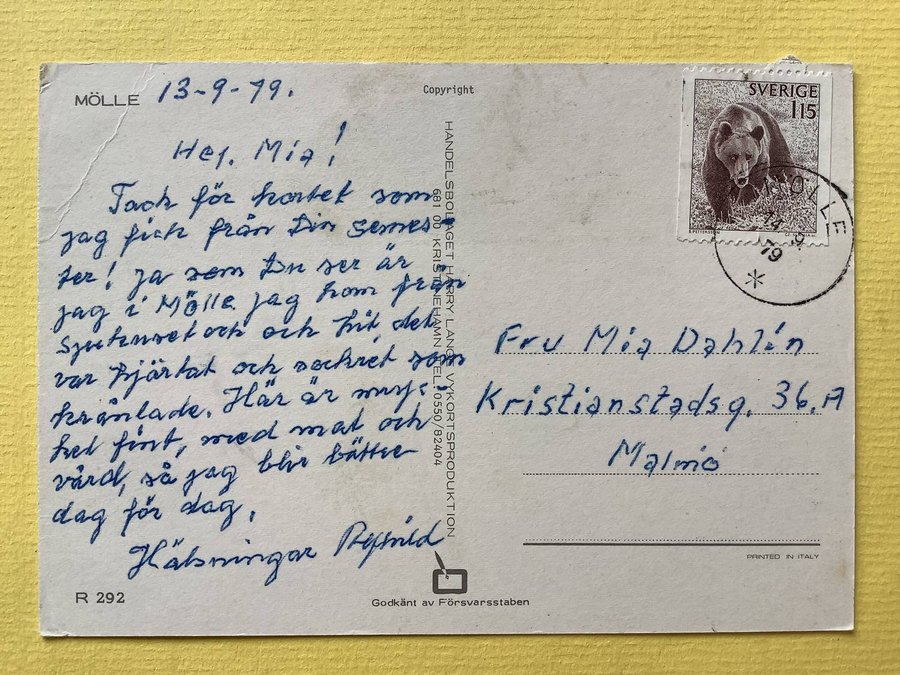 MÖLLE 13-9-79.
Hej. Mia!
Tack för kortet som
jag fick från Din semes-
ter! Ja som Du ser är
jag i Mölle jag kom från
sjukhuset och och hit det
var hjärtat och sockret som
krånlade. Här är myc-
ket fint, med mat och
vård, så jag blir bättre
dag för dag.
Hälsningar
R 292
Copyright
HANDELSBOLAGET HARRY LANGE VYKORTSPRODUKTION
681 00 KRISTINEHAMN TEL. 0550/82404
Godkänt av Försvarsstaben
SVERIGE
115
MÖLLE
14 9
79
Fru Mia Dahlin
Kristianstadsg. 36.A
Malmö
PRINTED IN ITALY